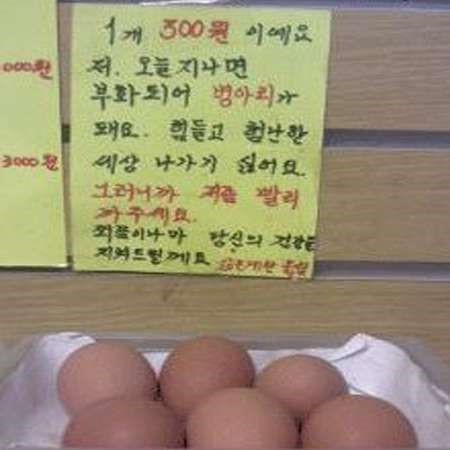 000원
3000원
1개 300원 이예요
저. 오늘지나면
부화되어 병아리가
돼요. 힘들고 험난한
세상 나가기 싫어요.
그러니까 저좀 빨리
까주세요.
쬐끔이나마 당신의 건강을
지켜드릴께요 삶은계란 올림